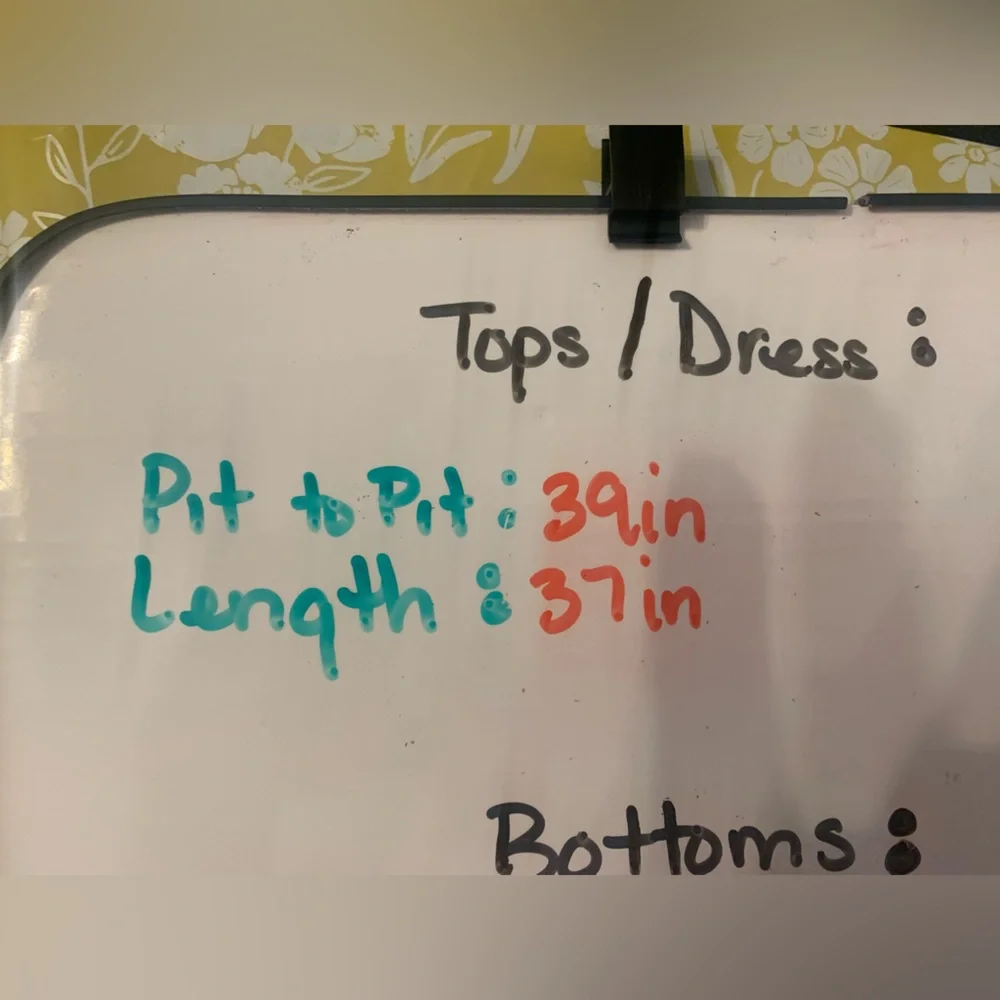 Tops / Dress :
Pit to Pit : 39in
Length : 37in
Bottoms :